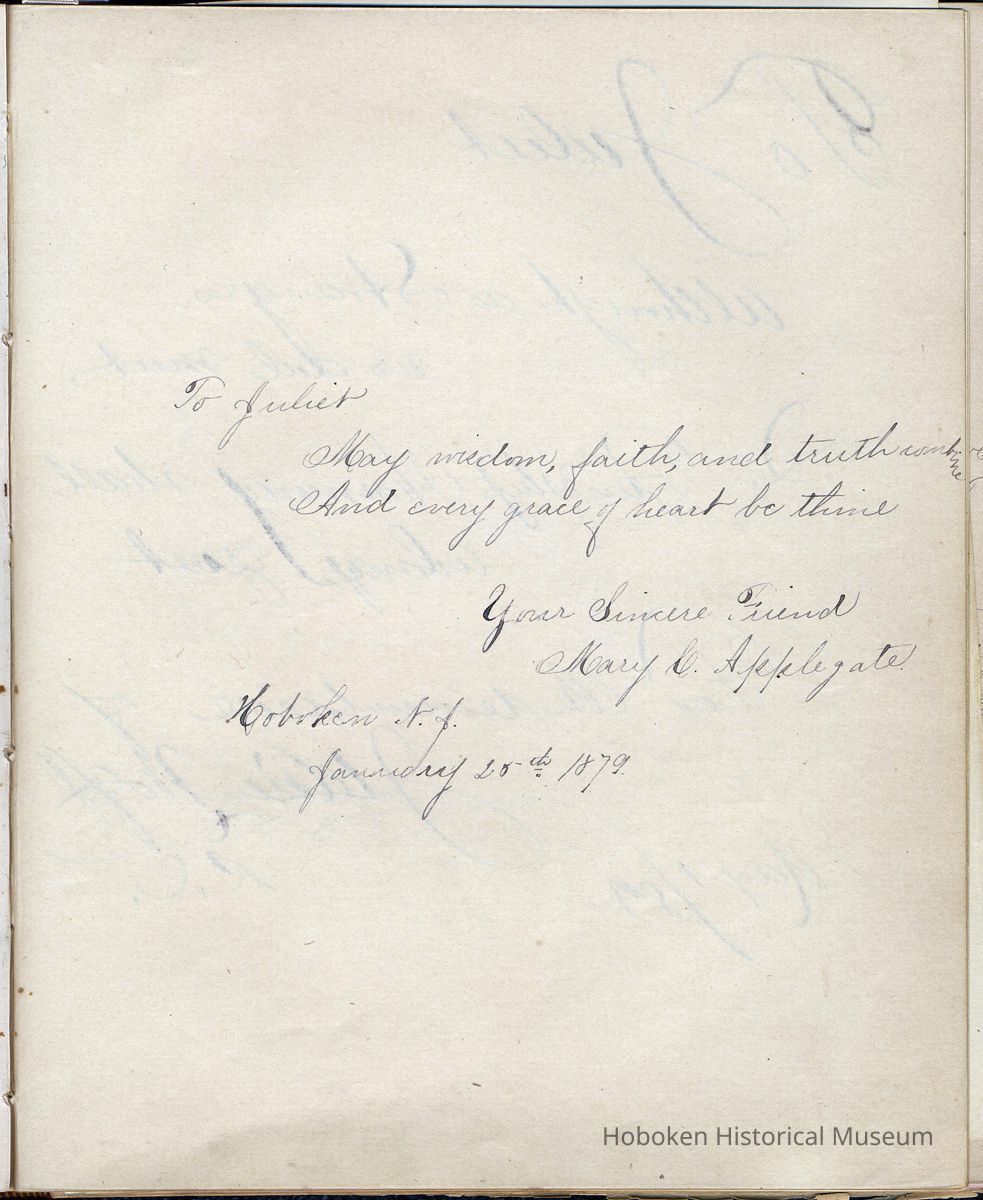 To Juliet
May wisdom, faith, and truth combine
And every grace of heart be thine
Your Sincere Friend
Mary C. Applegate.
Hoboken N. J.
January 25th 1879.
Hoboken Historical Museum